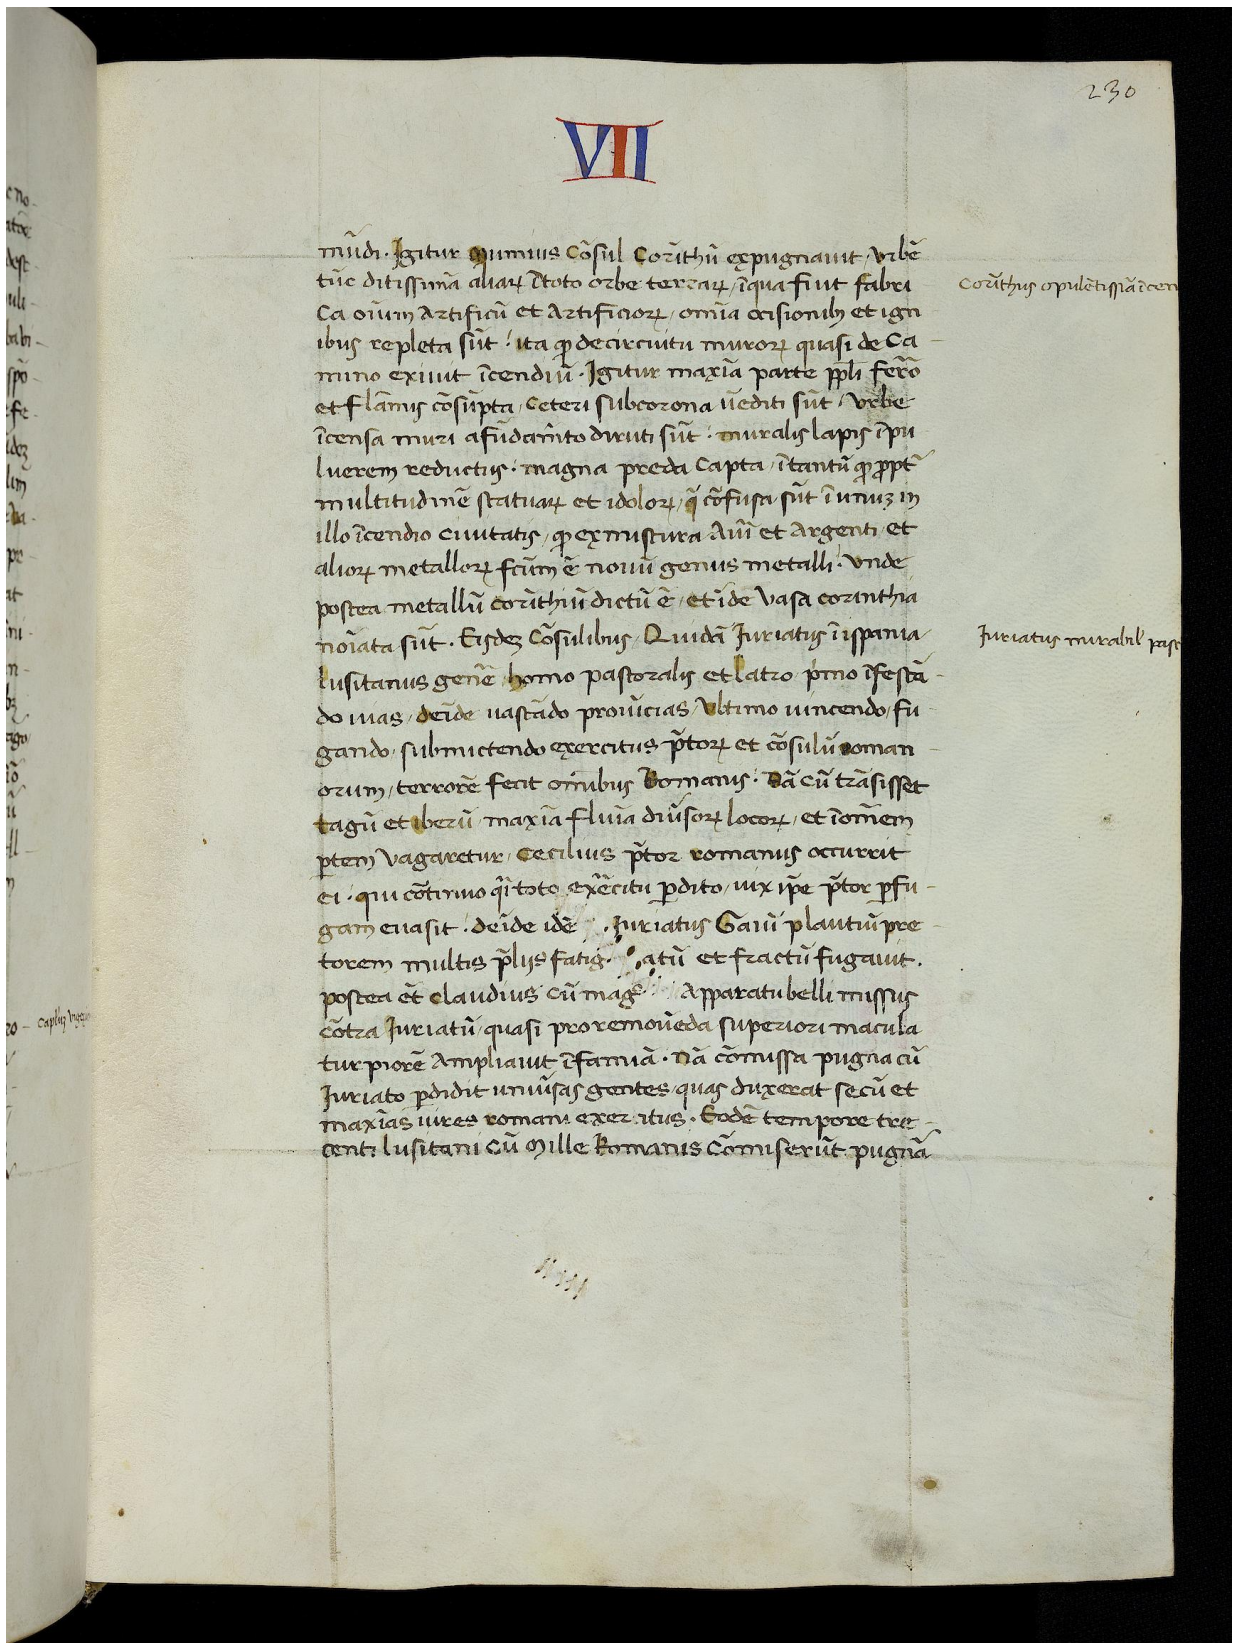 230
VII
mūdi. Igitur Mumius Cōsul Corīthū expugnavit, urbē
tūc ditissimā aliaꝝ ītoto orbe terraꝝ, īqua fiūt fabri
Corīthus opulētissiā īcen
Ca oīum Artificū et Artificioꝝ, omīa ocisionibꝫ et ign
ibus repleta sūt: ita ꝙ decircuitu muroꝝ quasi de Ca-
mino exivit īcendiū. Igitur maxīa parte ppl̄i ferro
et flāmis cōsūpta, Ceteri subcorona vēditi sūt, Urbe
īcensa muri afūdamīto diruti sūt. muralis lapis īpu
lverem reductus. magna preda Capta, ītantū ꝙ ꝓpt̄
multitudinē statuaꝝ et idoloꝝ, q̄ cōfusa sūt ī unuꝫ in
illo īcendio Civitatis, ꝙ ex mistura Aurī et Argenti, et
alioꝝ metalloꝝ fc̄um ē novū genus metalli. Unde
postea metallū corīthiū dictū ē, et īde Vasa corinthia
noīata sūt. Eisdeꝫ Cōsulibus, Quidā Iuriatus ī ispania,
Iuriatus mirabil' past
Lusitanus genē homo pastoralis et latro, pͥmo īfestā-
do vias, deīde vastādo provīcias, Ultimo vincendo, fu-
gando, submictendo exercitus p̄toꝝ et cōsulū roman-
orum, terrorē fecit omībus Romanis. Nā cū trāsisset
tagū et iberū, maxīa fluīa div̄soꝝ locoꝝ, et ī omēm
ꝑtem vagaretur, Cecilius p̄tor romanus occurrit
ei. qui cōtinuo qͣi toto exercitu ꝑdito, vix ip̄e p̄tor ꝑfu-
gam evasit. deīde idē Iuriatus Gaiū plautiū pre-
torem multis p̄liis fatig atū et fractū fugavit.
postea ēt Claudius cū magͦ Apparatu belli missus
cōtra Iuriatū, quasi pro removēda superiori macula
turpiorē Ampliavit īfamiā. Nā cōmissa pugna cū
Iuriato ꝑdidit univ̄sas gentes, quas duxerat secū et
maxīas vires romani exercitus. Eodē tempore tre-
centi lusitani Cū Mille Romanis Cōmiserūt pugnā